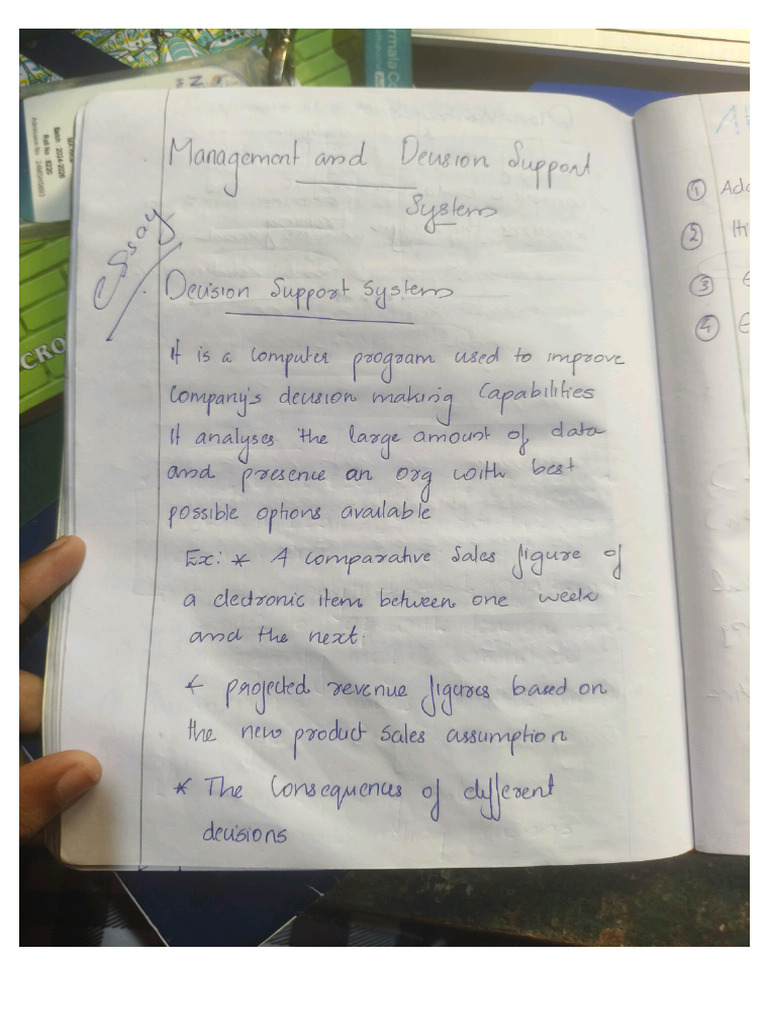 Management and Decision Support
System
Essay
Decision Support System
It is a computer program used to improve
Company's decision making Capabilities
It analyses the large amount of data
and presence an org with best
possible options available
Ex: * A comparative sales figure of
a electronic item between one week
and the next.
* projected revenue figures based on
the new product sales assumption
* The Consequences of different
decisions
① Add
②
③ E
④ E
CRO
Batch: 2024-2026
Roll No: 6220
Admission No: